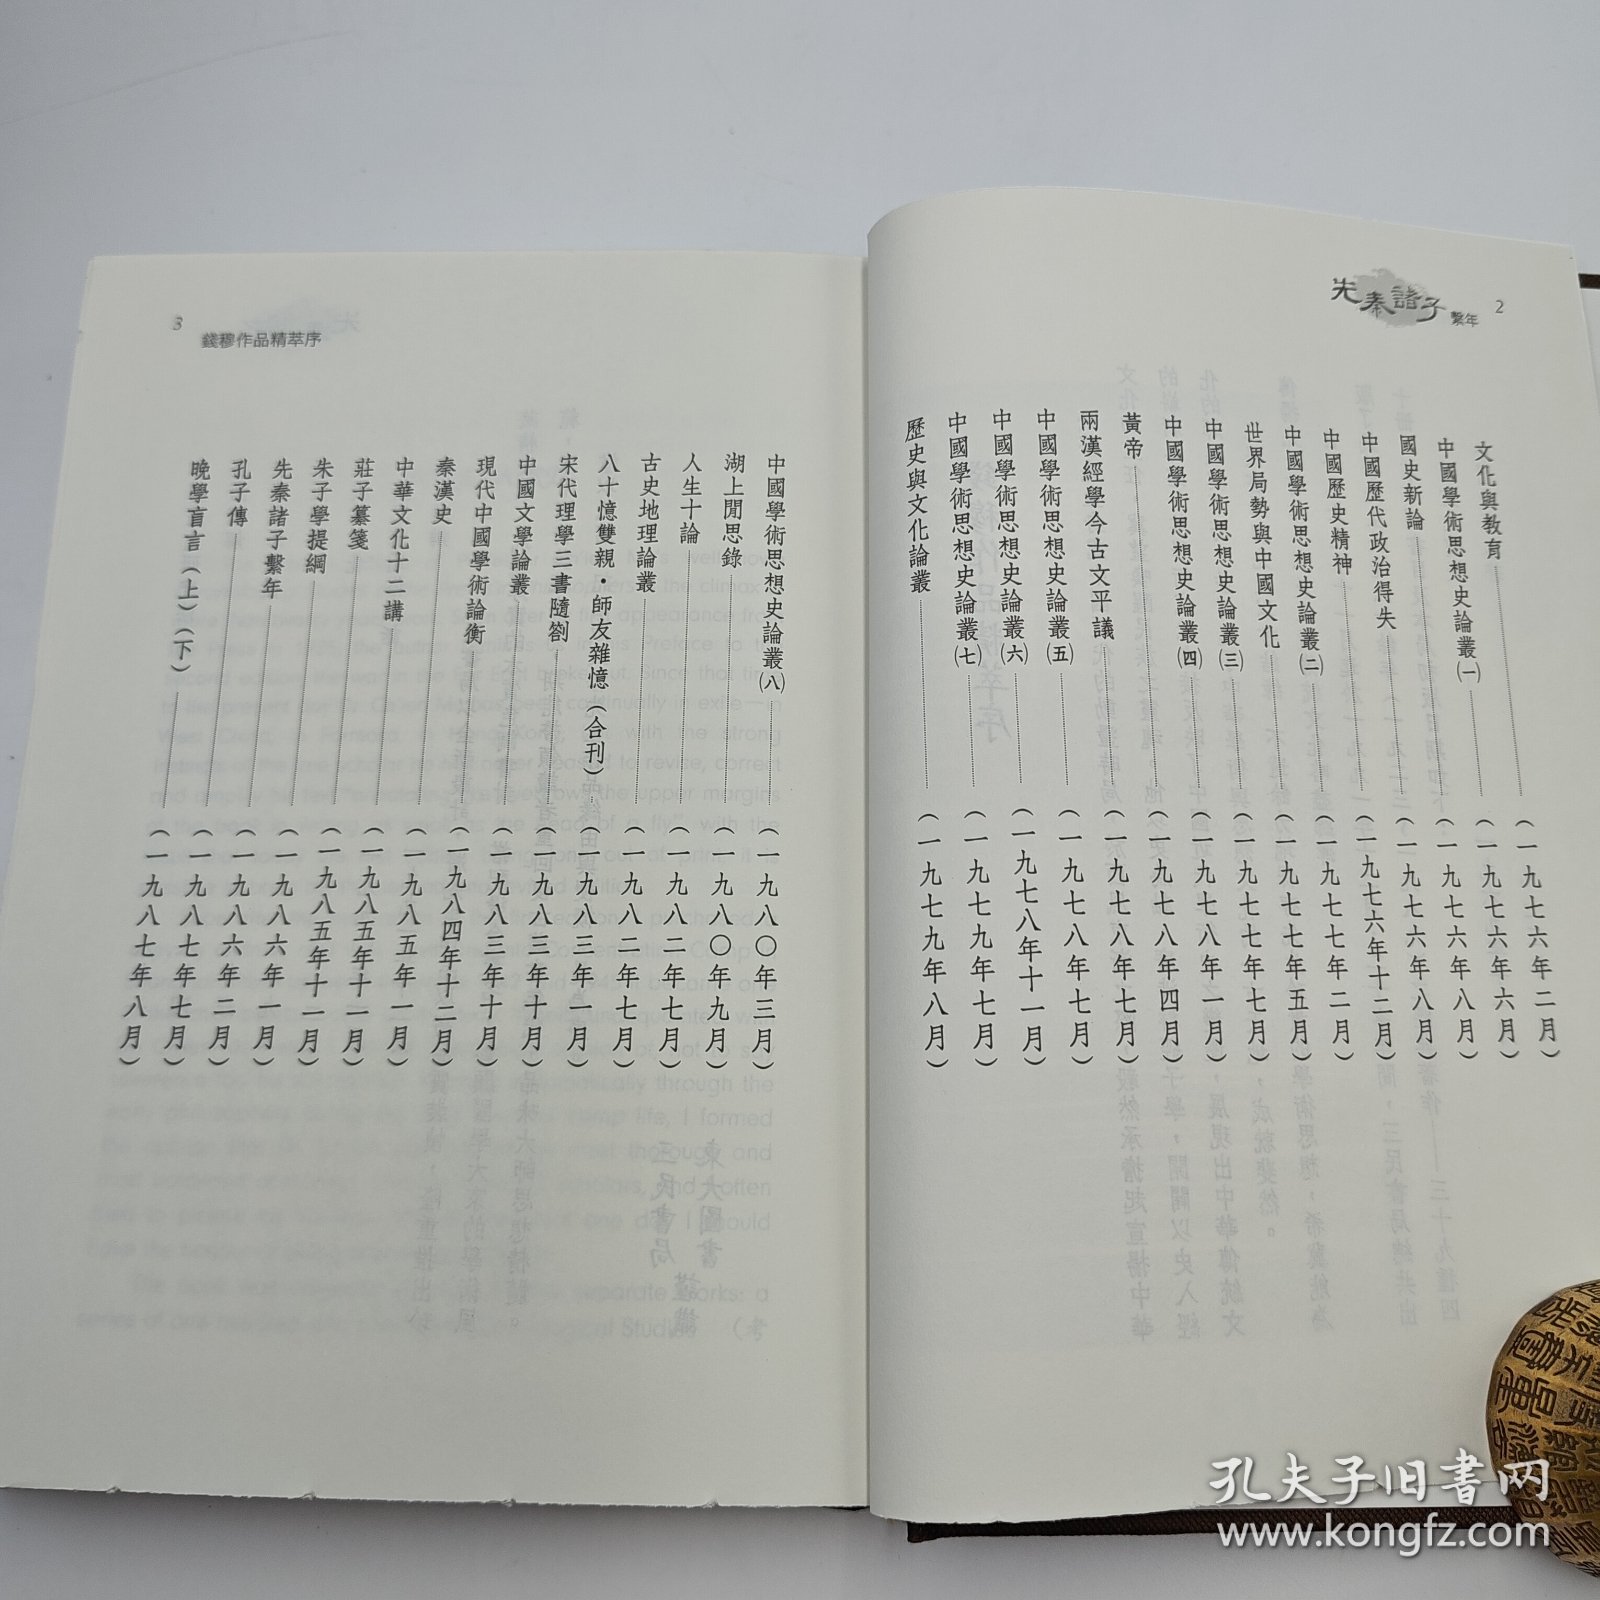 先秦諸子繫年 2
文化與教育……（一九七六年二月）
中國學術思想史論叢(一)……（一九七六年六月）
國史新論……（一九七六年八月）
中國歷代政治得失……（一九七六年八月）
中國歷史精神……（一九七六年十二月）
中國學術思想史論叢(二)……（一九七七年二月）
世界局勢與中國文化……（一九七七年五月）
中國學術思想史論叢(三)……（一九七七年七月）
中國學術思想史論叢(四)……（一九七八年一月）
黃帝……（一九七八年四月）
兩漢經學今古文平議……（一九七八年七月）
中國學術思想史論叢(五)……（一九七八年七月）
中國學術思想史論叢(六)……（一九七八年十一月）
中國學術思想史論叢(七)……（一九七九年七月）
歷史與文化論叢……（一九七九年八月）
3 錢穆作品精萃序
中國學術思想史論叢(八)……（一九八〇年三月）
湖上閒思錄……（一九八〇年九月）
人生十論……（一九八二年七月）
古史地理論叢……（一九八二年七月）
八十憶雙親・師友雜憶（合刊）……（一九八三年一月）
宋代理學三書隨劄……（一九八三年十月）
中國文學論叢……（一九八三年十月）
現代中國學術論衡……（一九八四年十二月）
秦漢史……（一九八五年一月）
中華文化十二講……（一九八五年十一月）
莊子纂箋……（一九八五年十一月）
朱子學提綱……（一九八六年一月）
先秦諸子繫年……（一九八六年二月）
孔子傳……（一九八七年七月）
晚學盲言（上）（下）……（一九八七年八月）
孔夫子旧书网
www.kongfz.com